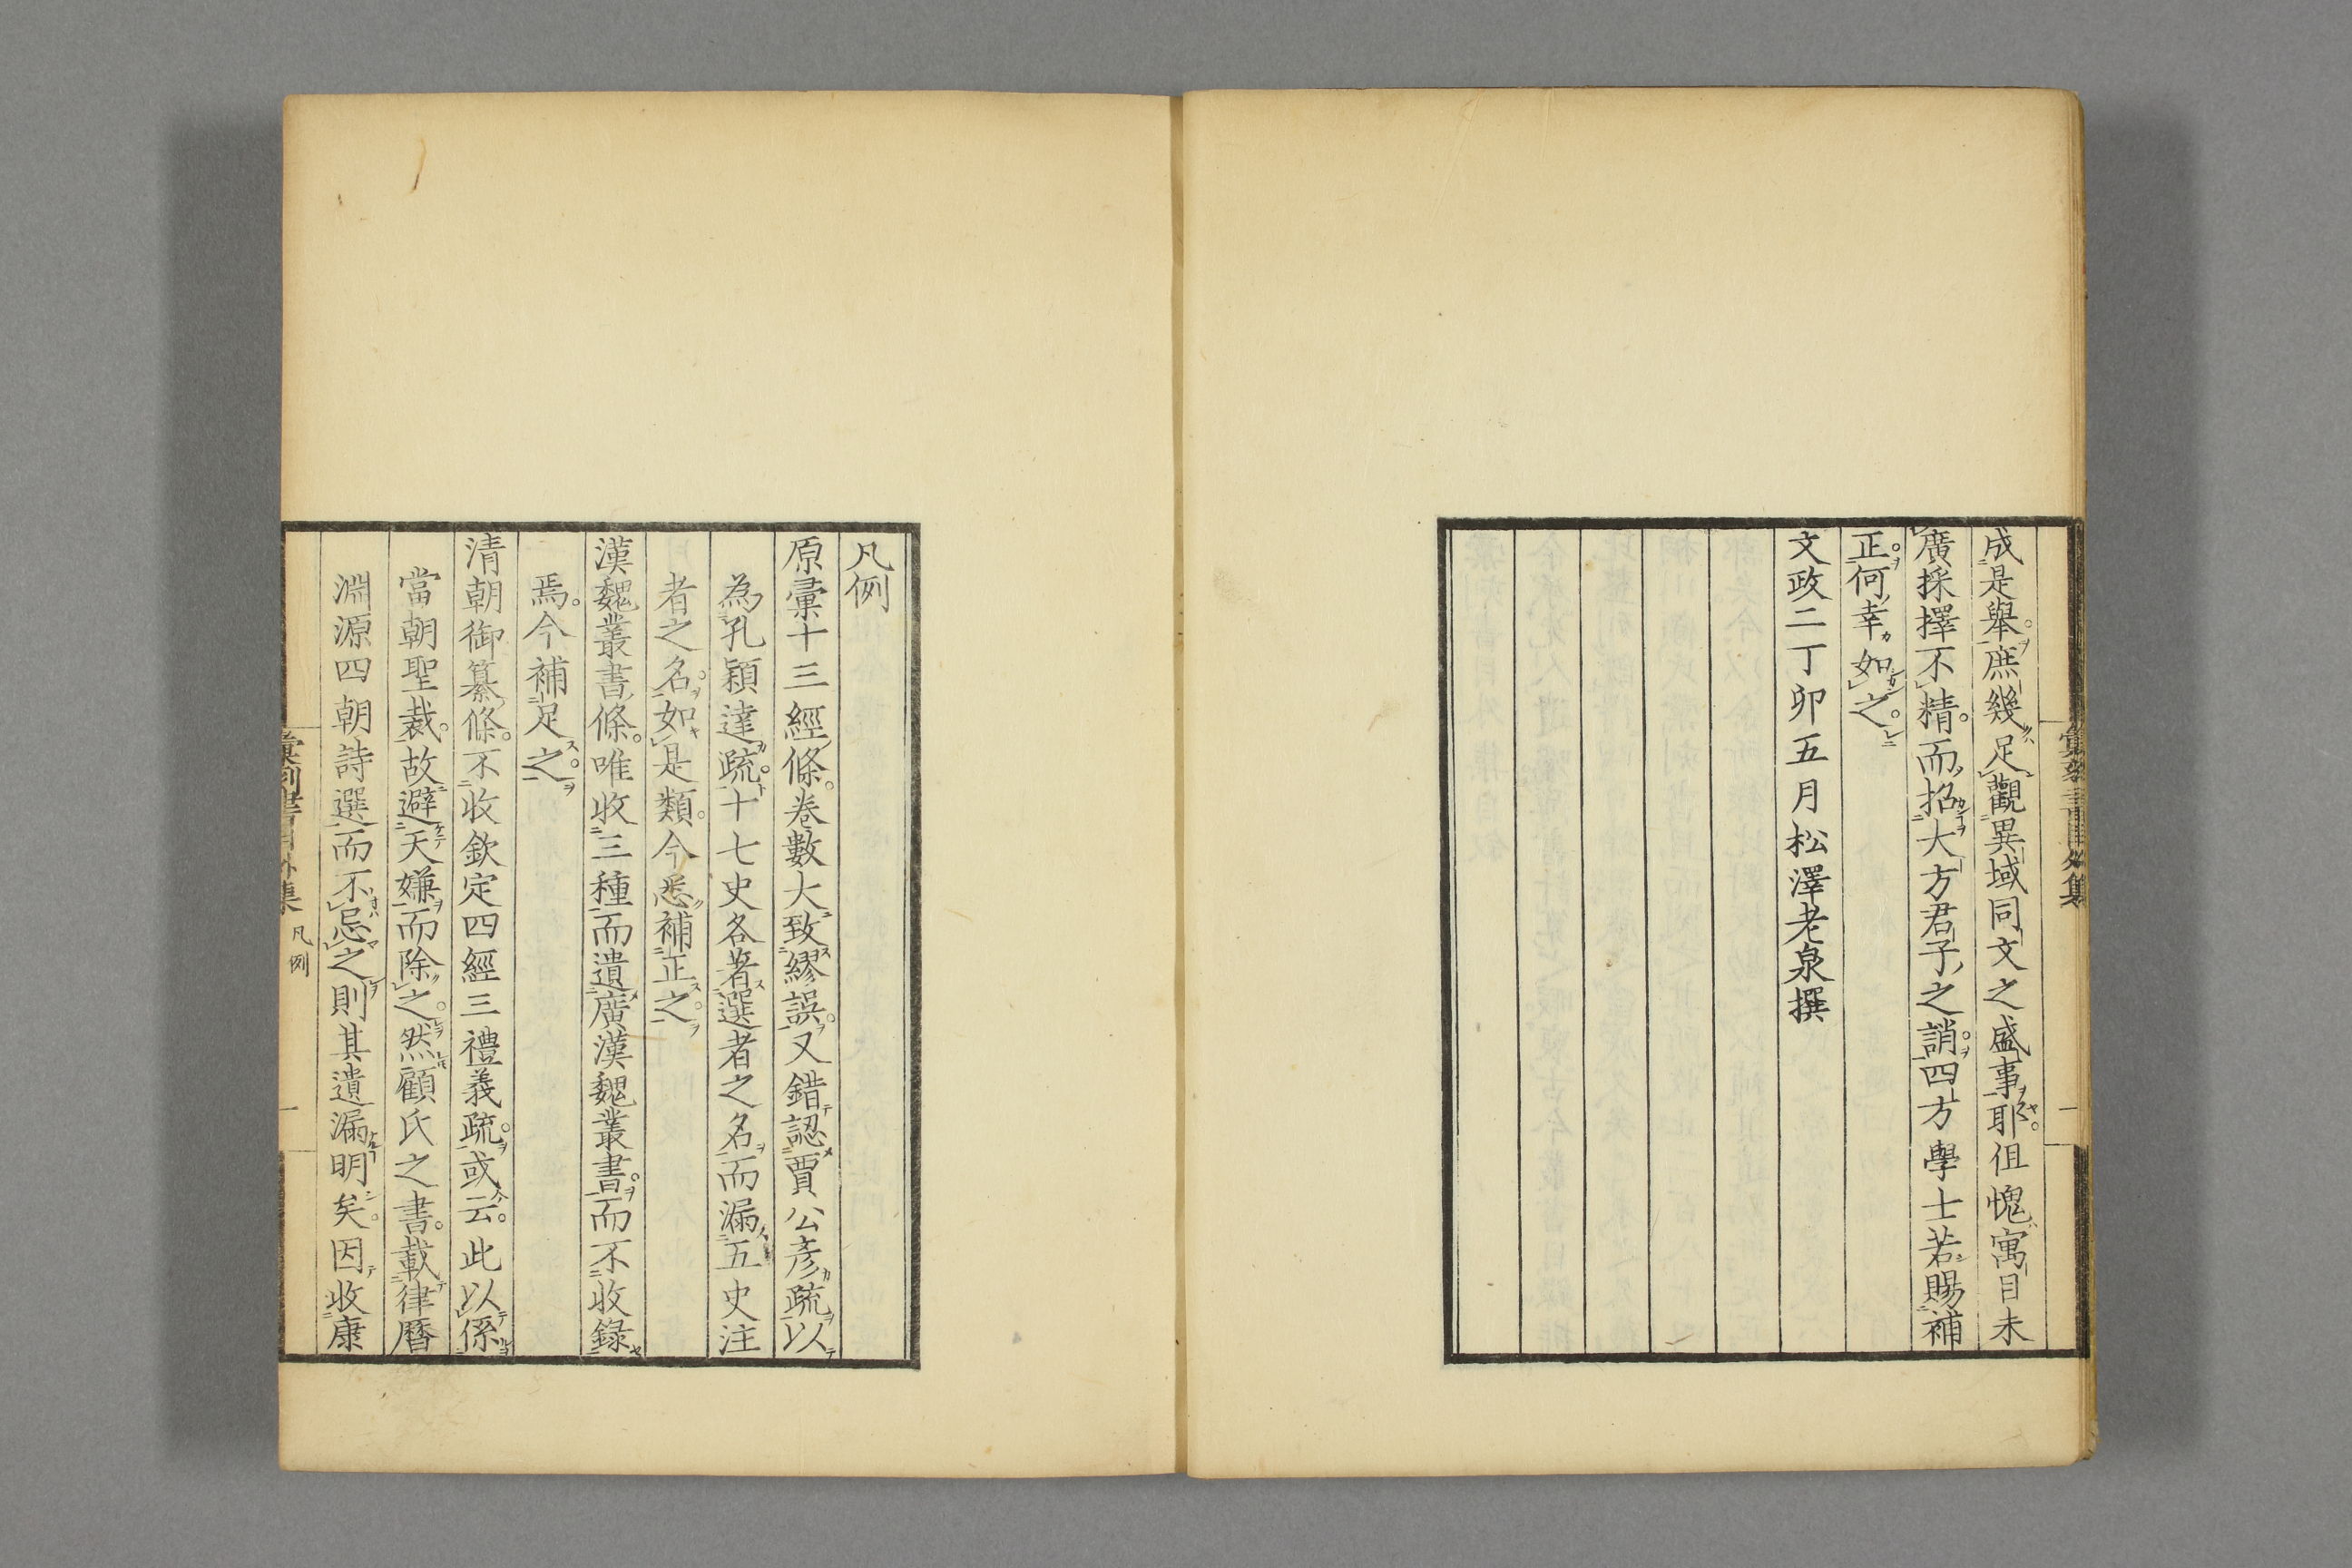 成是舉。庶幾足觀異域同文之盛事耶。但愧寓目未
廣採擇不精。而招大方君子之誚。四方學士若賜補
正。何幸如之。
文政二丁卯五月松澤老泉撰
凡例
原彙十三經條。卷數大致繆誤。又錯認賈公彥疏以
為孔穎達疏。十七史各著選者之名而漏五史注
者之名。如是類。今悉補正之。
漢魏叢書條。唯收三種而遺廣漢魏叢書。而不收錄
焉。今補足之。
清朝御纂條。不收欽定四經三禮義疏。或云。此以係
當朝聖裁。故避天嫌而除之。然顧氏之書。載律曆
淵源四朝詩選而不忌之則其遺漏明矣。因收康
彙刻書目外集
凡例
一